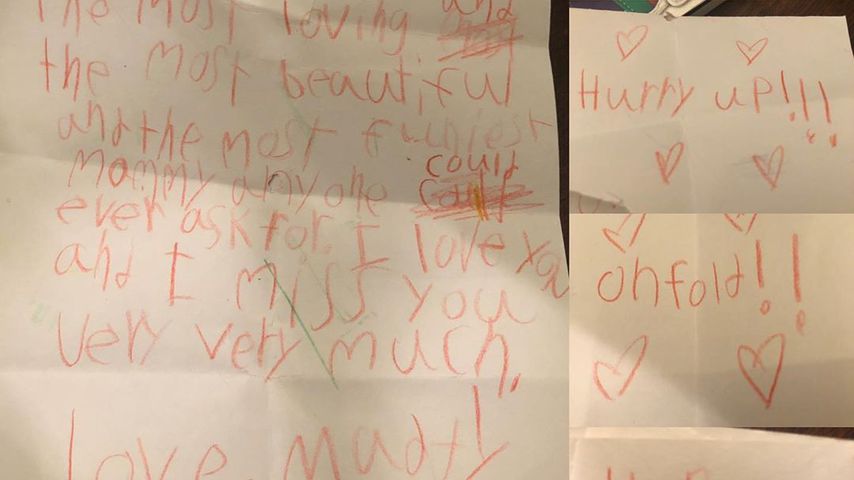 the most loving and
the most beautiful
and the most funniest
mommy anyone could
ever ask for. I love you
and I miss you
very very much.
love, Mady!
Hurry up!!!
onfold!!